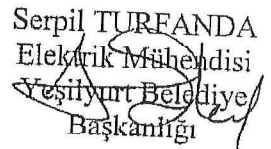 Serpil TURFANDA
Elektrik Mühendisi
Yeşilyurt Belediye
Başkanlığı